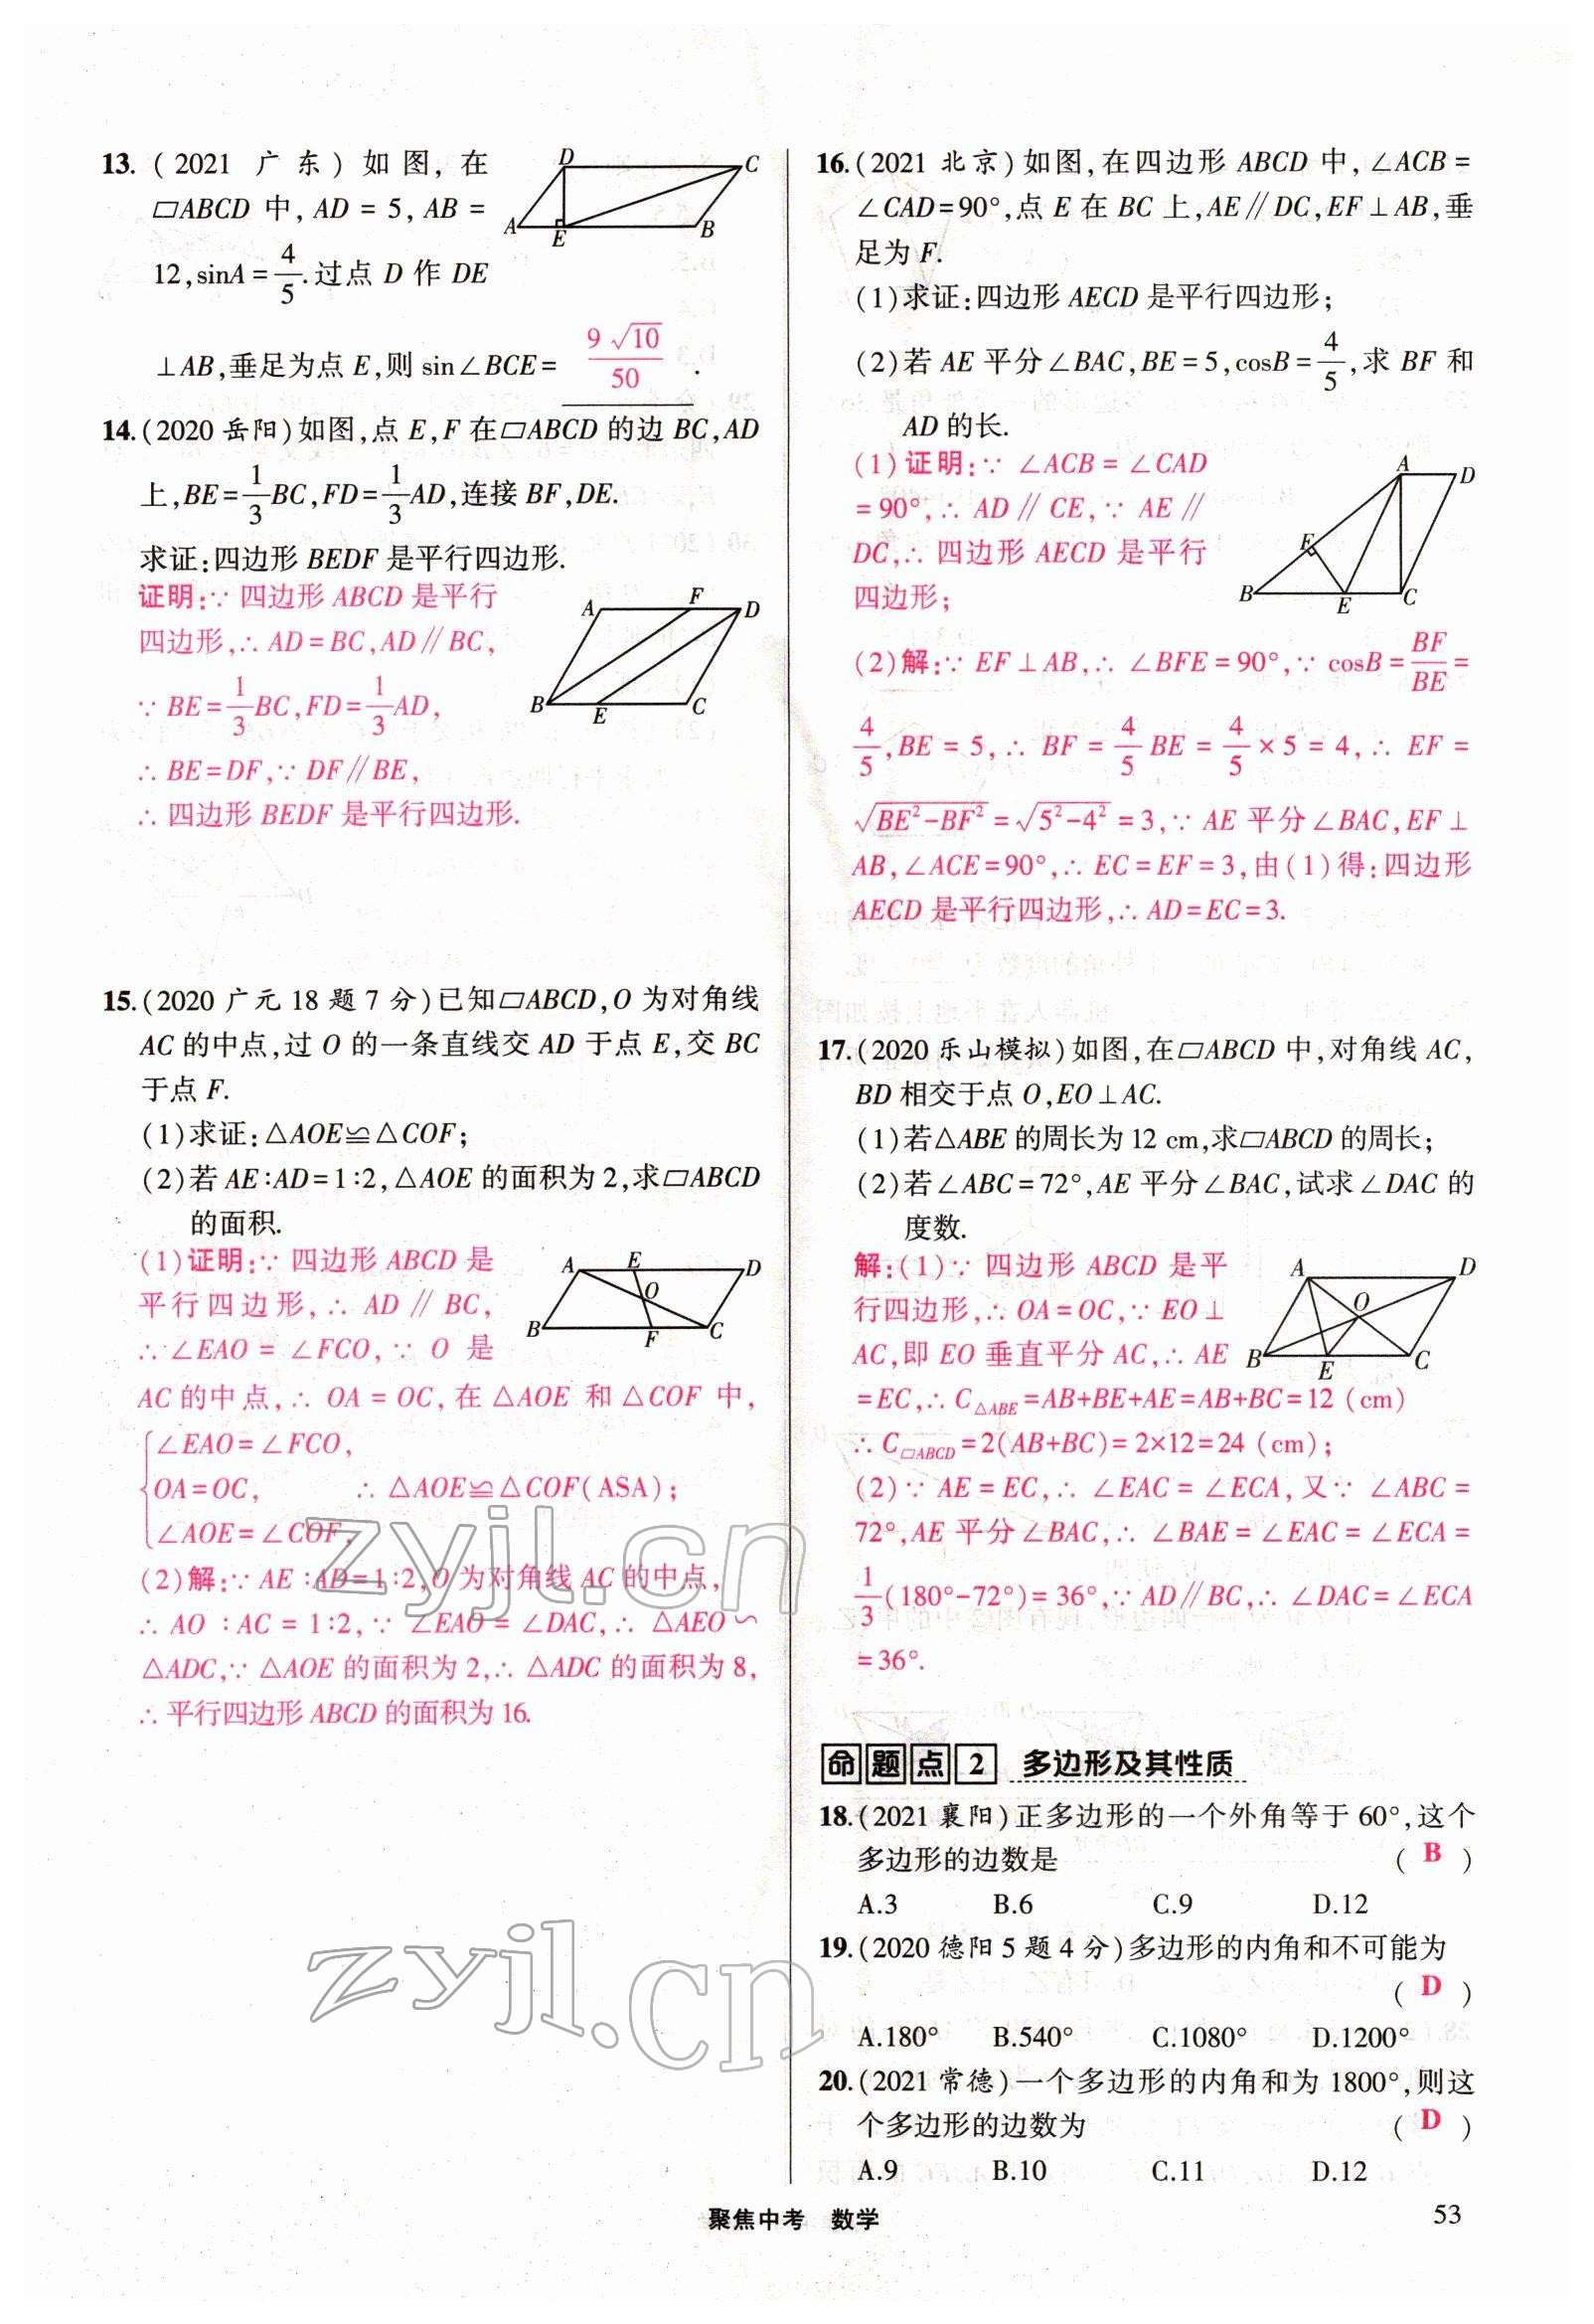 13. (2021 广东)如图,在
▱ABCD 中, AD = 5, AB =
12, sinA = 4/5. 过点 D 作 DE
⊥AB,垂足为点 E,则 sin∠BCE= 9√10/50 .
14.(2020 岳阳)如图,点 E,F 在▱ABCD 的边 BC,AD
上,BE=1/3 BC,FD=1/3 AD,连接 BF,DE.
求证:四边形 BEDF 是平行四边形.
证明:∵ 四边形 ABCD 是平行
四边形,∴ AD=BC,AD∥BC,
∵ BE=1/3 BC,FD=1/3 AD,
∴ BE=DF,∵ DF∥BE,
∴ 四边形 BEDF 是平行四边形.
15.(2020 广元 18 题 7 分)已知▱ABCD,O 为对角线
AC 的中点,过 O 的一条直线交 AD 于点 E,交 BC
于点 F.
(1)求证:△AOE≌△COF;
(2)若 AE∶AD=1∶2,△AOE 的面积为 2,求▱ABCD
的面积.
(1)证明:∵ 四边形 ABCD 是
平行四边形,∴ AD∥BC,
∴ ∠EAO = ∠FCO,∵ O 是
AC 的中点,∴ OA = OC,在 △AOE 和 △COF 中,
∠EAO=∠FCO,
OA=OC, ∴ △AOE≌△COF(ASA);
∠AOE=∠COF,
(2)解:∵ AE∶AD=1∶2,O 为对角线 AC 的中点,
∴ AO∶AC = 1∶2,∵ ∠EAO = ∠DAC,∴ △AEO∽
△ADC,∵ △AOE 的面积为 2,∴ △ADC 的面积为 8,
∴ 平行四边形 ABCD 的面积为 16.
16.(2021 北京)如图,在四边形 ABCD 中,∠ACB=
∠CAD=90°,点 E 在 BC 上,AE∥DC,EF⊥AB,垂
足为 F.
(1)求证:四边形 AECD 是平行四边形;
(2)若 AE 平分∠BAC,BE=5,cosB=4/5,求 BF 和
AD 的长.
(1)证明:∵ ∠ACB=∠CAD
=90°,∴ AD∥CE,∵ AE∥
DC,∴ 四边形 AECD 是平行
四边形;
(2)解:∵ EF⊥AB,∴ ∠BFE=90°,∵ cosB=BF/BE=
4/5,BE=5,∴ BF=4/5 BE=4/5×5=4,∴ EF=
√(BE²-BF²)=√(5²-4²)=3,∵ AE 平分∠BAC,EF⊥
AB,∠ACE=90°,∴ EC=EF=3,由(1)得:四边形
AECD 是平行四边形,∴ AD=EC=3.
17.(2020 乐山模拟)如图,在▱ABCD 中,对角线 AC,
BD 相交于点 O,EO⊥AC.
(1)若△ABE 的周长为 12 cm,求▱ABCD 的周长;
(2)若∠ABC=72°,AE 平分∠BAC,试求∠DAC 的
度数.
解:(1)∵ 四边形 ABCD 是平
行四边形,∴ OA=OC,∵ EO⊥
AC,即 EO 垂直平分 AC,∴ AE
=EC,∴ C△ABE=AB+BE+AE=AB+BC=12 (cm)
∴ C▱ABCD=2(AB+BC)=2×12=24 (cm);
(2)∵ AE=EC,∴ ∠EAC=∠ECA,又∵ ∠ABC=
72°,AE 平分∠BAC,∴ ∠BAE=∠EAC=∠ECA=
1/3(180°-72°)=36°,∵ AD∥BC,∴ ∠DAC=∠ECA
=36°.
命题点2 多边形及其性质
18.(2021 襄阳)正多边形的一个外角等于 60°,这个
多边形的边数是 ( B )
A.3 B.6 C.9 D.12
19.(2020 德阳 5 题 4 分)多边形的内角和不可能为
( D )
A.180° B.540° C.1080° D.1200°
20.(2021 常德)一个多边形的内角和为 1800°,则这
个多边形的边数为 ( D )
A.9 B.10 C.11 D.12
聚焦中考 数学
53
D C A E B
A F D B E C
A E D O B F C
A D E B E C
A D O B E C
zyjl.cn
zyjl.cn